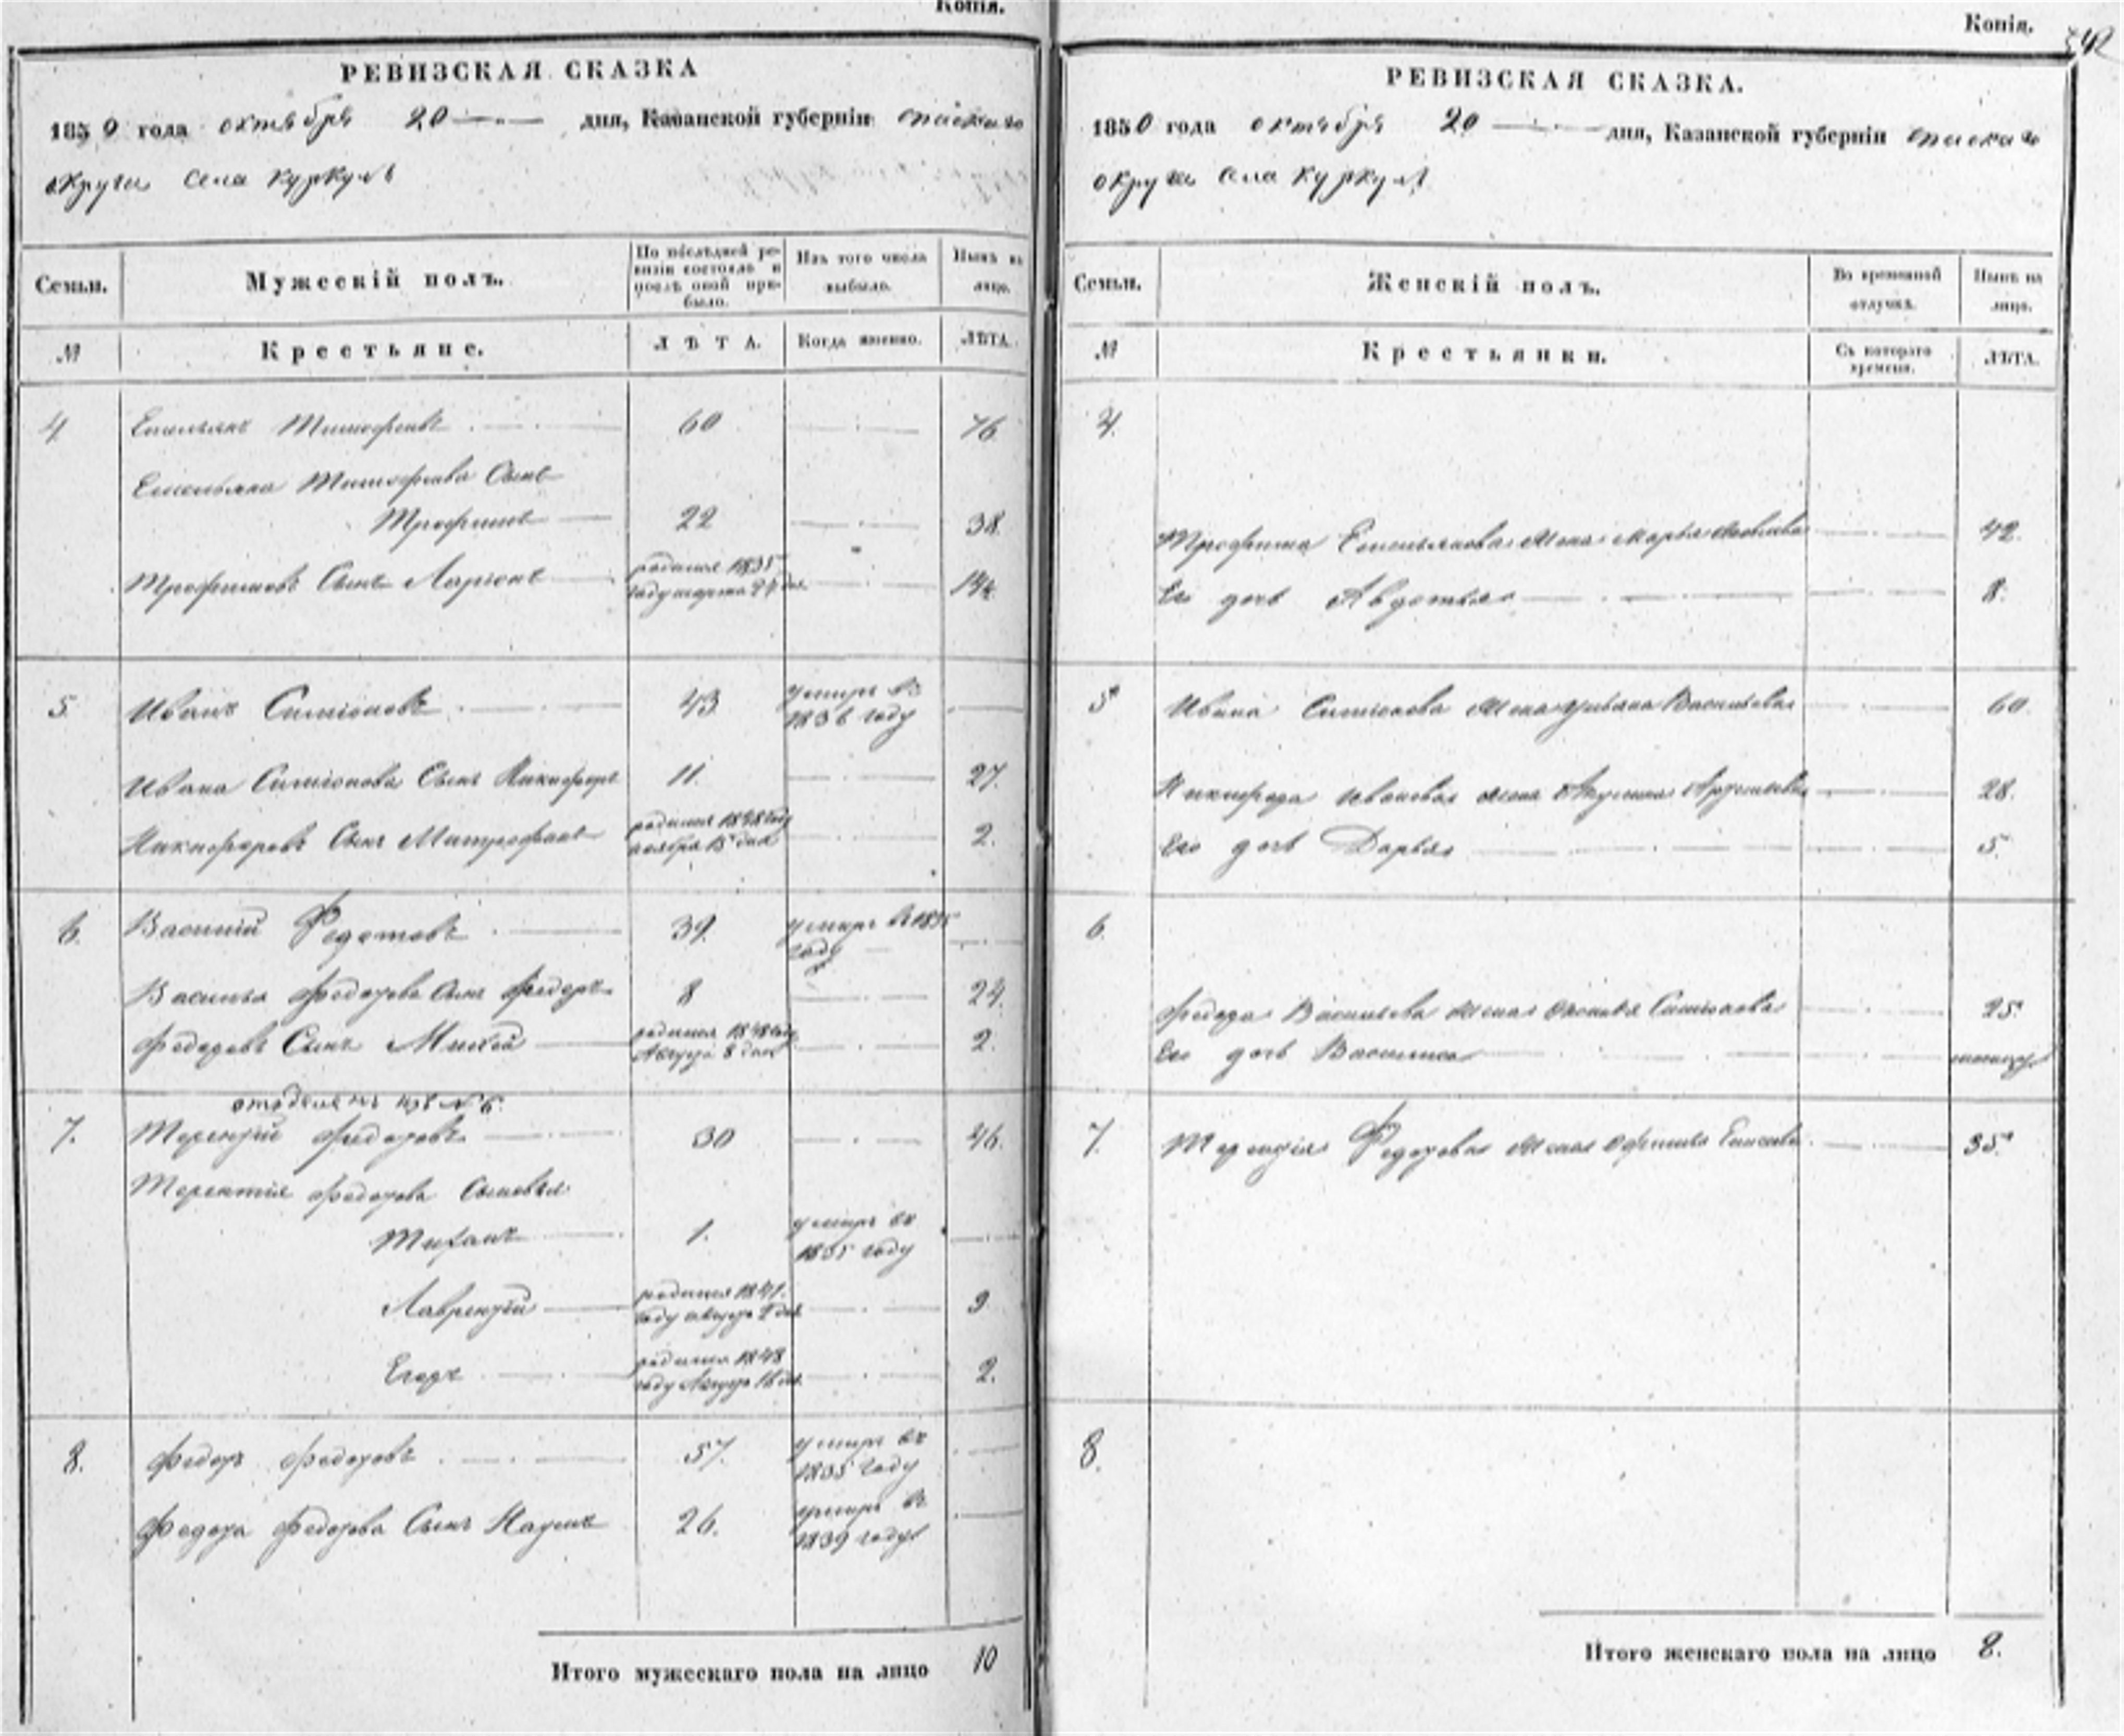 Копія.
РЕВИЗСКАЯ СКАЗКА
1850 года октября 20 дня, Казанской губерніи спаскаго
округи села куркуль
Семьи. Мужескій полъ. По послѣдней ревизіи состояло и послѣ оной прибыло. Изъ того числа выбыло. Нынѣ на лицо.
№ Крестьяне. ЛѢТА. Когда именно. ЛѢТА.
4 Емельянъ Тимофеевъ 60 76.
Емельяна Тимофеева Сынъ
Трофимъ 22 38.
Трофимовъ Сынъ Ларіонъ родился 1835 году марта 14
5. Иванъ Симіоновъ 43 умиръ въ
1836 году
Ивана Симіонова Сынъ Никифоръ 11. 27.
Никифоровъ Сынъ Митрофанъ родился 1848 году ноября 15 дня 2.
6. Василий Федотовъ 39. умиръ въ 1835
году
Василья Федорова Сынъ Федоръ 8 24.
Федоровъ Сынъ родился 1848 году Августа 8 дня 2.
отделенъ изъ № 6.
7. Терентій Федоровъ 30 46.
Терентия Федорова Сыновья
1. умиръ въ
1835 году
Лаврентій родился 1841 году августа дня 9
Егоръ родился 1848 году Августа 16 дня 2.
8. Федоръ Федоровъ 57. умиръ въ
1835 году
Федора Федорова Сынъ Наумъ 26. умиръ въ
1839 году
Итого мужескаго пола на лицо 10
Копія.
342
РЕВИЗСКАЯ СКАЗКА.
1850 года октября 20 дня, Казанской губерніи спаскаго
округи села куркуль
Семьи. Женскій полъ. Во временной отлучкѣ. Нынѣ на лицо.
№ Крестьянки. Съ котораго времени. ЛѢТА.
4.
Трофима Емельянова жена Марья Яковлева 42.
Его дочь Авдотья 8.
5 Ивана Симіонова жена Ульяна Васильева 60.
Никифора Иванова жена Акулина 28.
Его дочь Дарья 5.
6.
Федора Васильева жена Симіонова 25.
Его дочь Василиса
7. Терентія Федорова жена Офимья 35.
8.
Итого женскаго пола на лицо 8.